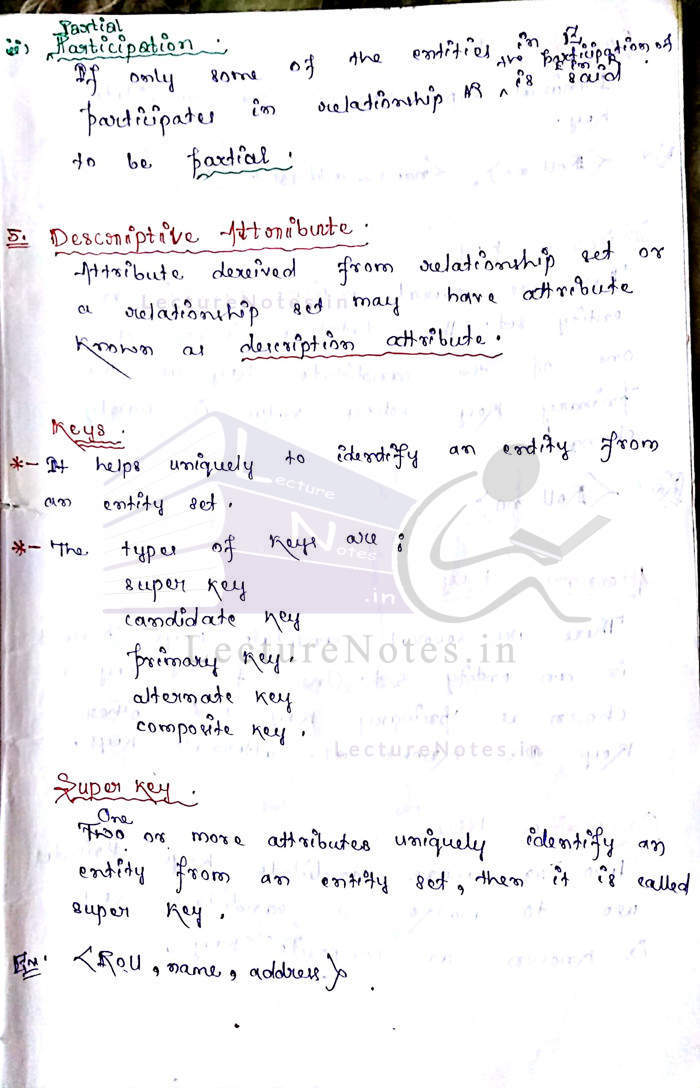 ii) Partial Participation :
If only some of the entities in E,
participates in relationship R, the participation of E in R is said
to be partial.
5. Descriptive Attribute.
Attribute dereived from relationship set or
a relationship set may have attribute
known as description attribute.
Keys.
*- It helps uniquely to identify an entity from
an entity set.
*- The types of keys are :
super key
candidate key
primary key.
alternate key
composite key.
Super key.
One
Two or more attributes uniquely identify an
entity from an entity set, then it is called
super key.
Ex: <Roll, name, address>.
LectureNotes.in
Lecture
Notes
.in
LectureNotes.in
LectureNotes.in